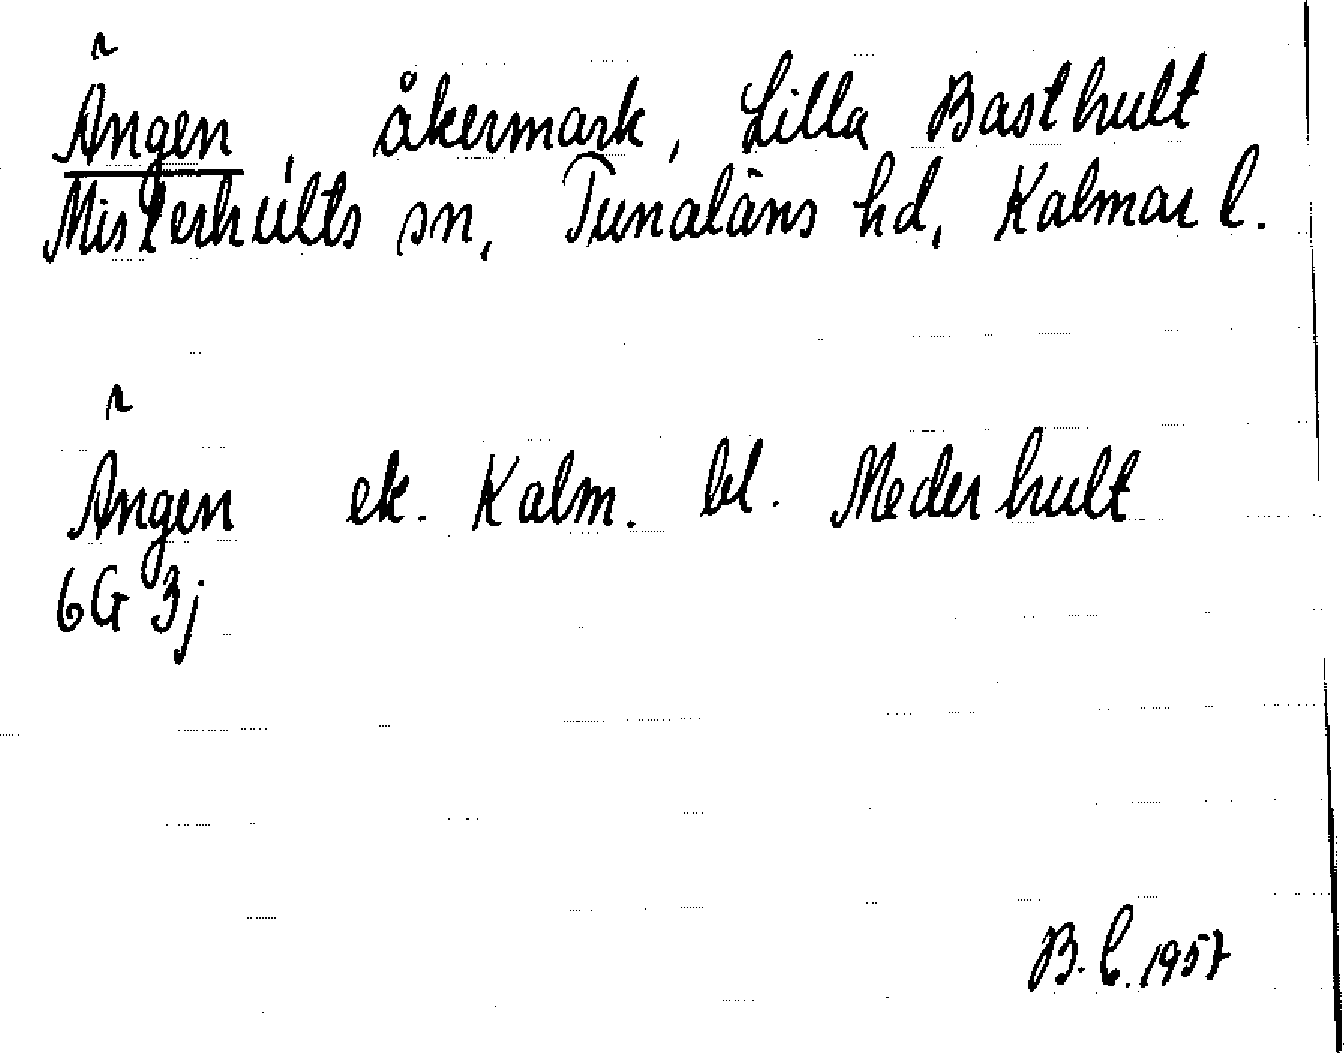 Ängen, åkermark, Lilla Basthult
Misterhults sn, Tunaläns hd, Kalmar l.
Ängen ek. Kalm. bl. Mederhult
6G 3j
B.C. 1957